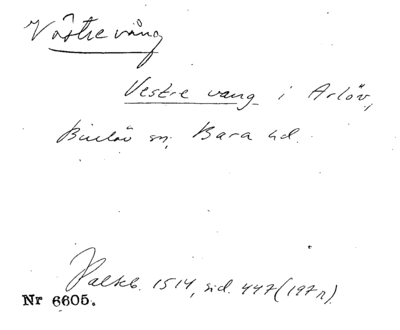 Västre vång
Vestre vang i Arlöv,
Burlöv sn, Bara hd.
Palteb. 1514, sid. 447 (197 r).
Nr 6605.